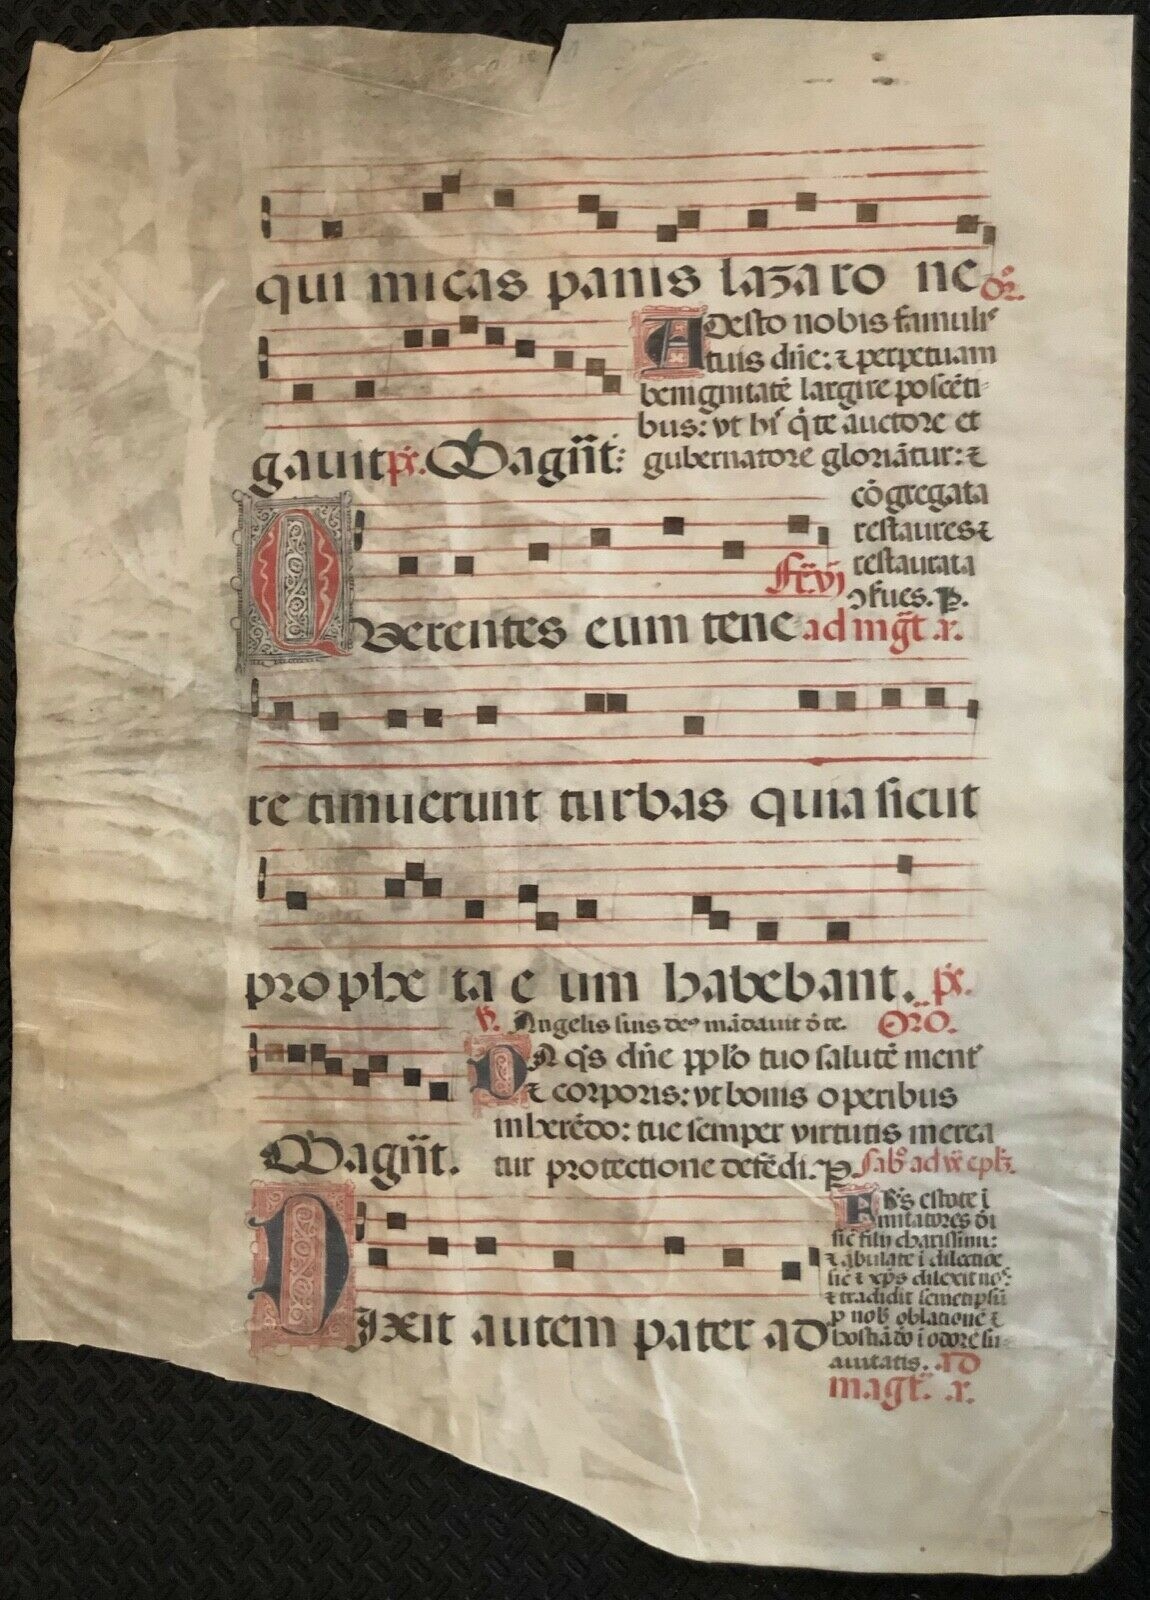 qui micas panis lazaro ne or̃.
gavit p̃s. Magñt:
Adesto nobis famulis
tuis dñe: ⁊ perpetuam
benignitatē largire poscēti-
bus: vt hi' q̃ te auctore et
gubernatore gloriātur: ⁊
cōgregata
restaures ⁊
restaurata
ↄserues. P.
Querentes eum tene ad mg̃t .r.
re timuerunt turbas quia sicut
prophe ta e um habebant. p̃s.
℣. Angelis suis de⁹ mādavit d̄ te. Orõ.
DA q̄s dñe pplo tuo salutē ment'
⁊ corporis: vt bonis operibus
inherēdo: tue semper virtutis merea
Magñt. tur protectione defēdi. P. Sab̃o ad
Dixit autem pater ad
estote i
mitatores d̄i
sic̄ filij charissimi:
⁊ ābulate i dilectiōe
sic̄ ⁊ xp̄s dilexit nos:
⁊ tradidit semetipsū
p nob' oblationē ⁊
hostiā dō i odorē su-
auitatis. ad
magt̃. .r.